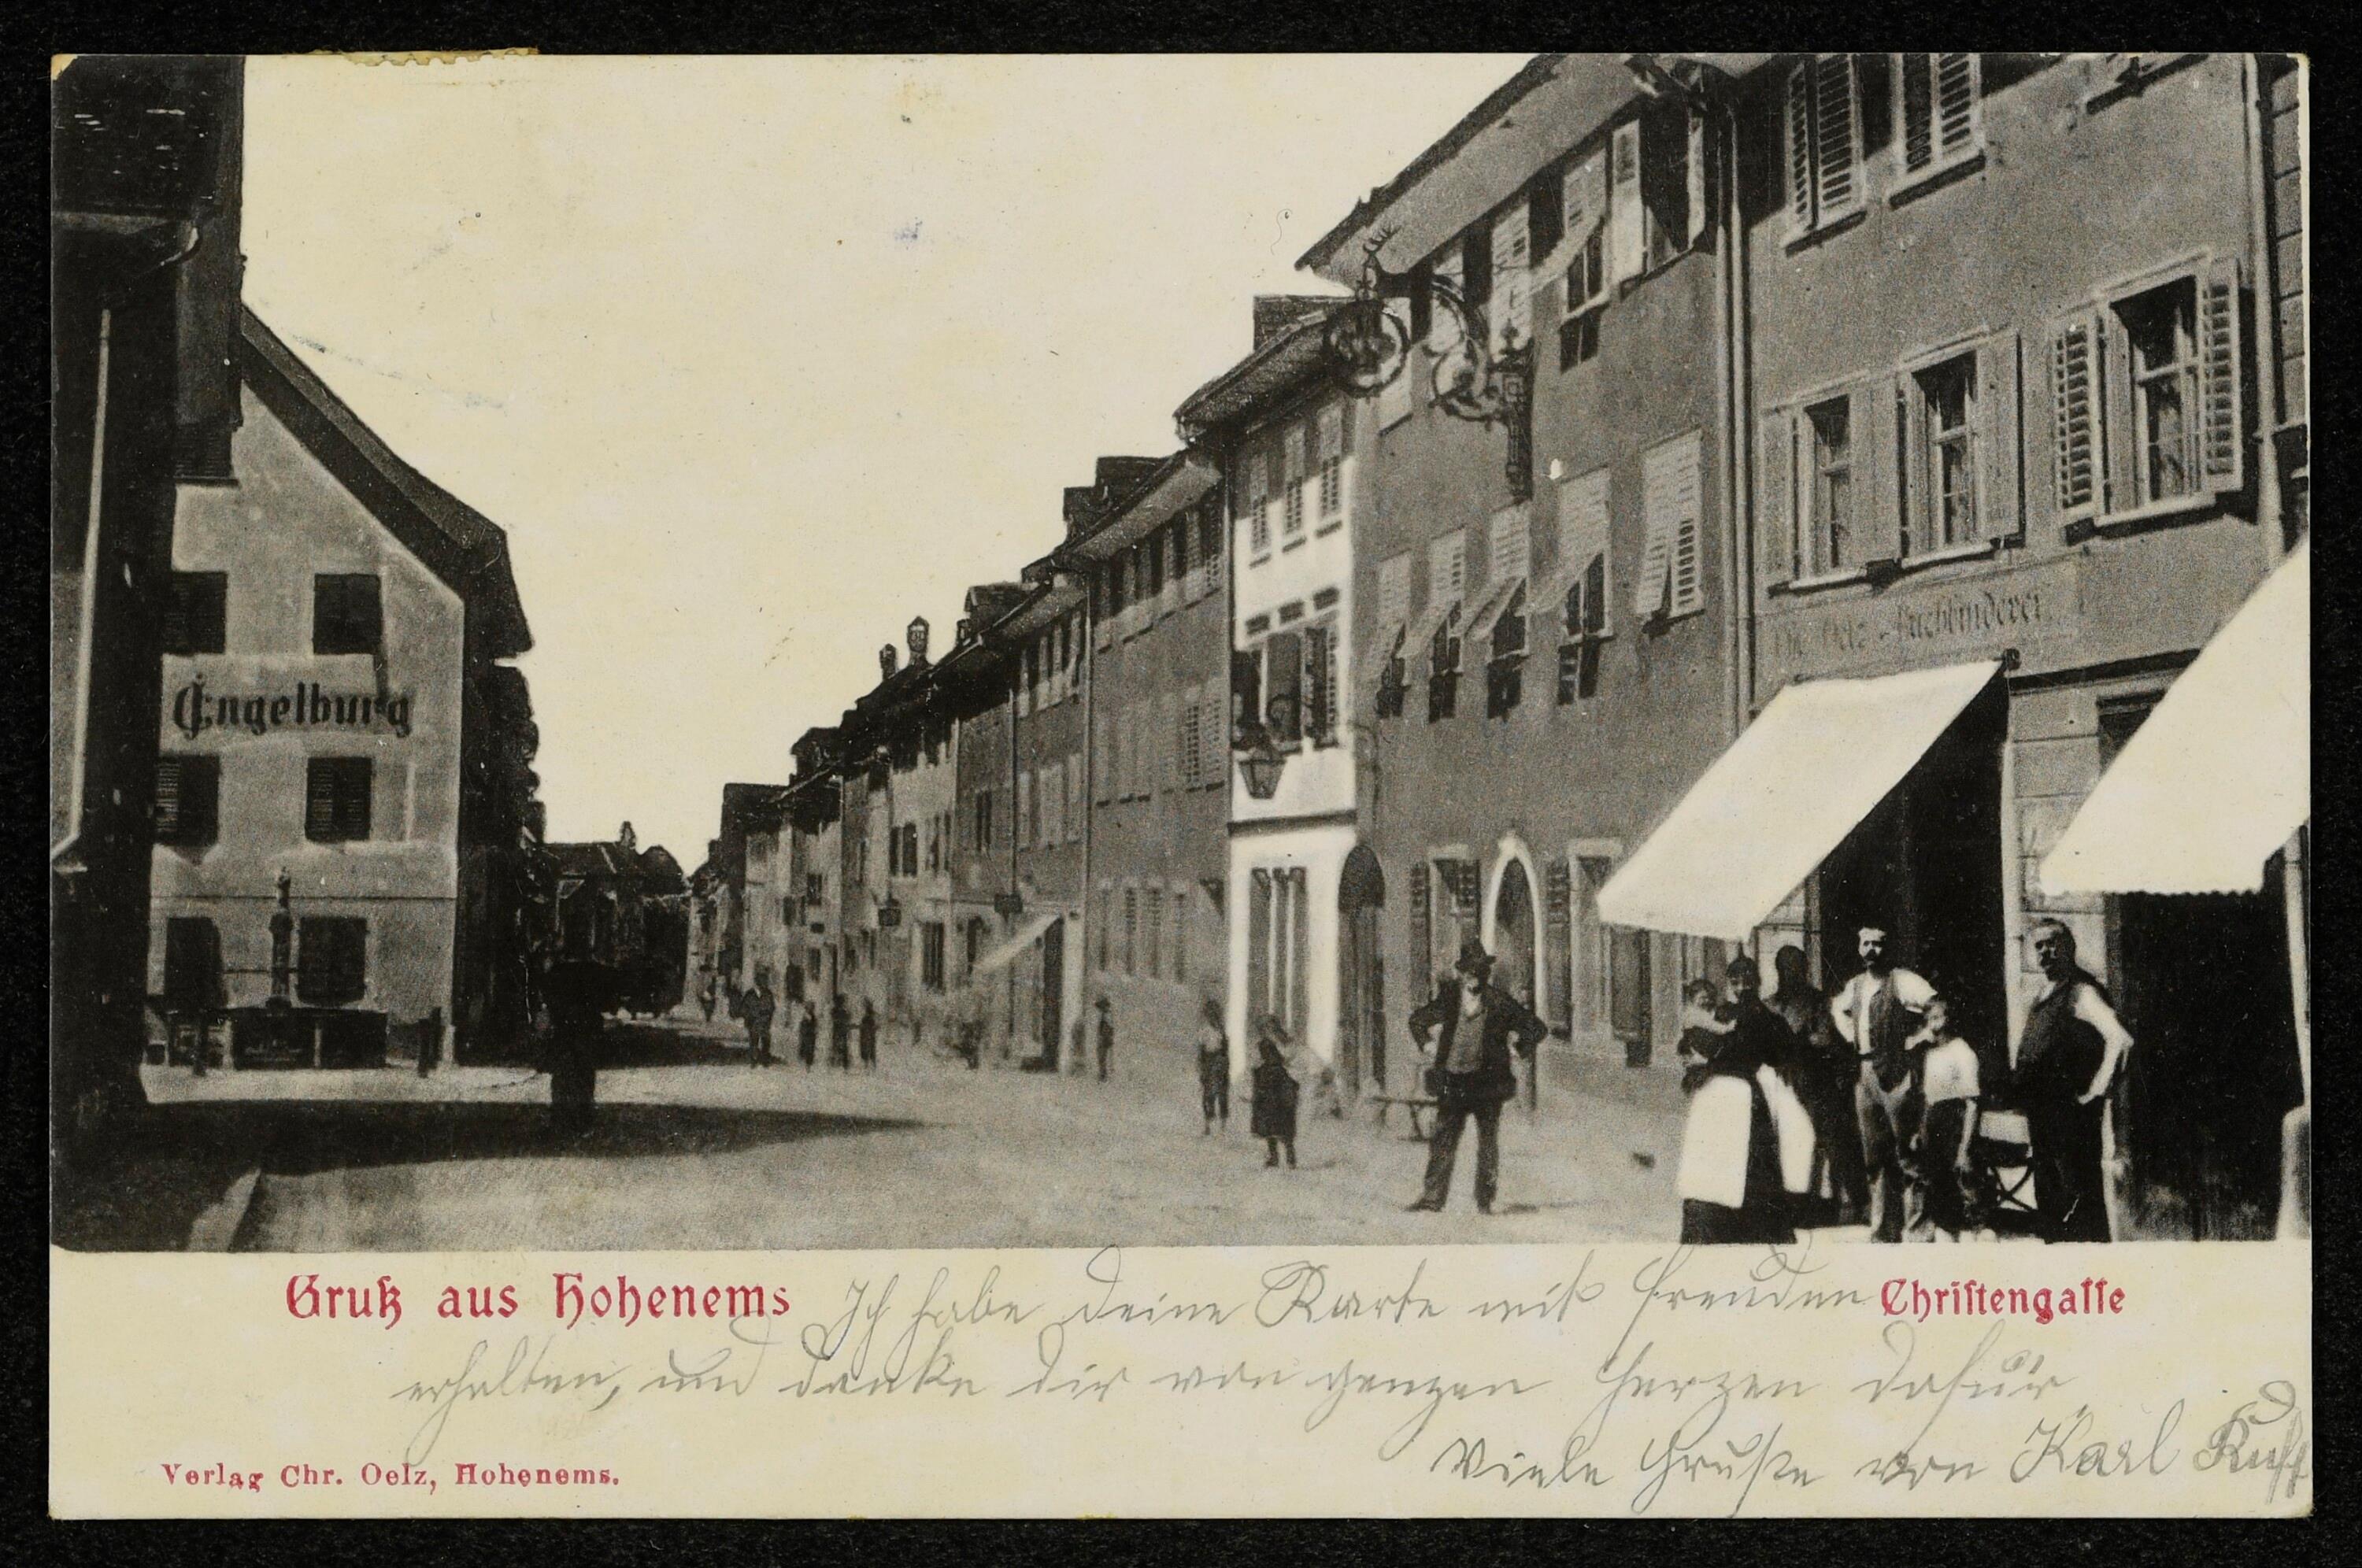 Engelburg
Buchbinderei
Gruß aus Hohenems
Christengasse
Ich habe deine Karte mit freuden
erhalten, und danke dir von ganzen Herzen dafür.
Viele Gruße von Karl
Verlag Chr. Oelz, Hohenems.